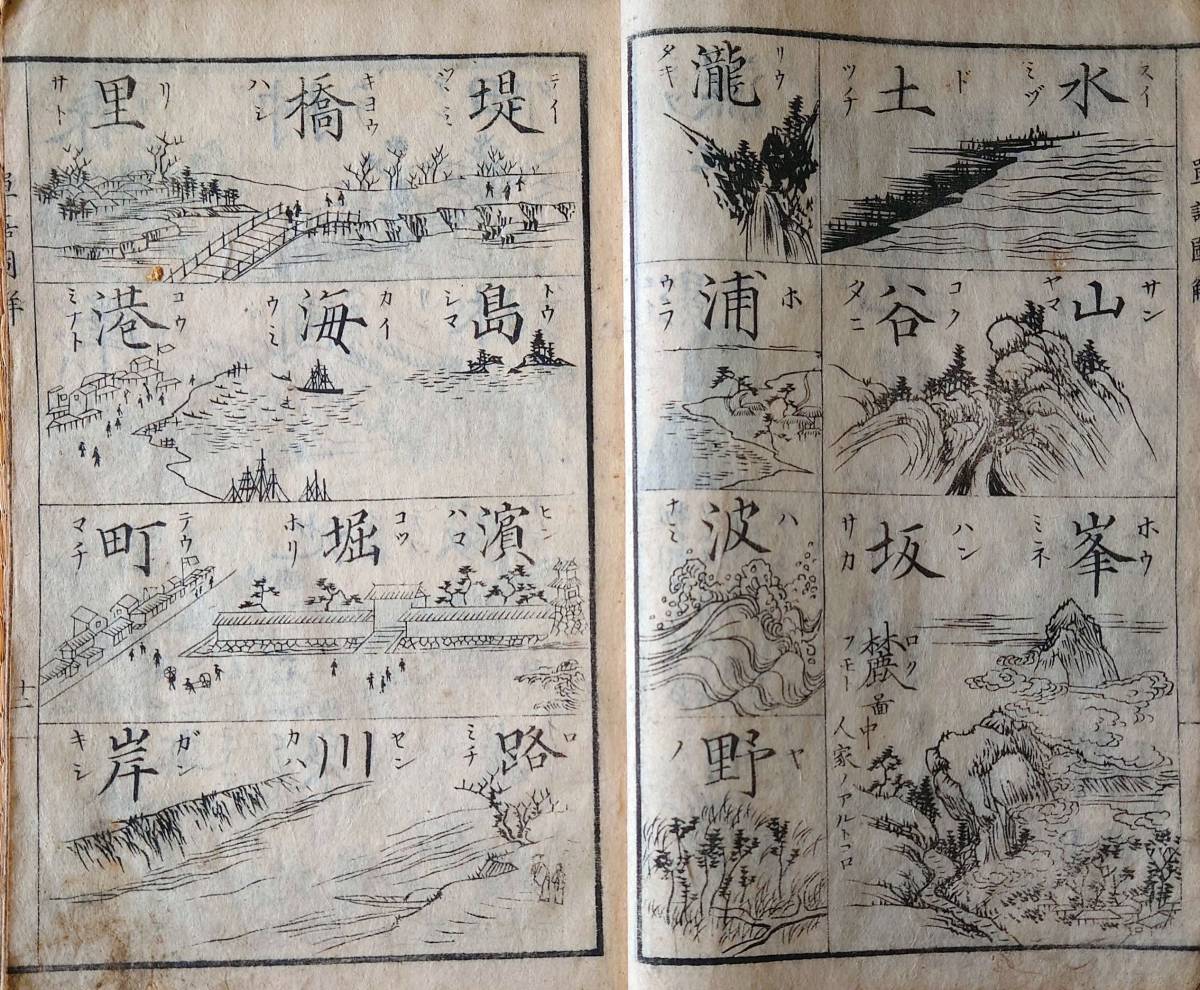 水 スイ ミヅ
土 ド ツチ
山 サン ヤマ
谷 コク タニ
峯 ホウ ミネ
坂 ハン サカ
麓 ロク フモト
啚中
人家ノアルトコロ
瀧 リウ タキ
浦 ホ ウラ
波 ハ ナミ
野 ヤ ノ
堤 テイ ツヽミ
橋 キヨウ ハシ
里 リ サト
島 トウ シマ
海 カイ ウミ
港 コウ ミナト
濱 ヒン ハマ
堀 コツ ホリ
町 テウ マチ
路 ロ ミチ
川 セン カハ
岸 ガン キシ
十二